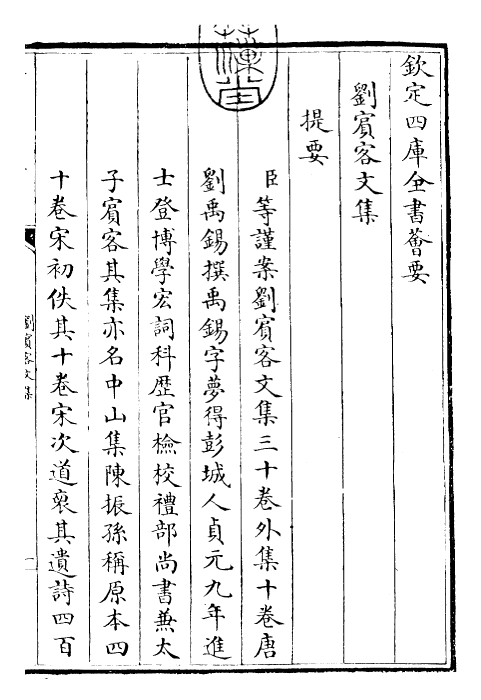 欽定四庫全書薈要
劉賓客文集
提要
臣等謹案劉賓客文集三十卷外集十卷唐
劉禹錫撰禹錫字夢得彭城人貞元九年進
士登博學宏詞科歴官檢校禮部尚書兼太
子賓客其集亦名中山集陳振孫稱原本四
十卷宋初佚其十卷宋次道裒其遺詩四百
劉賓客文集